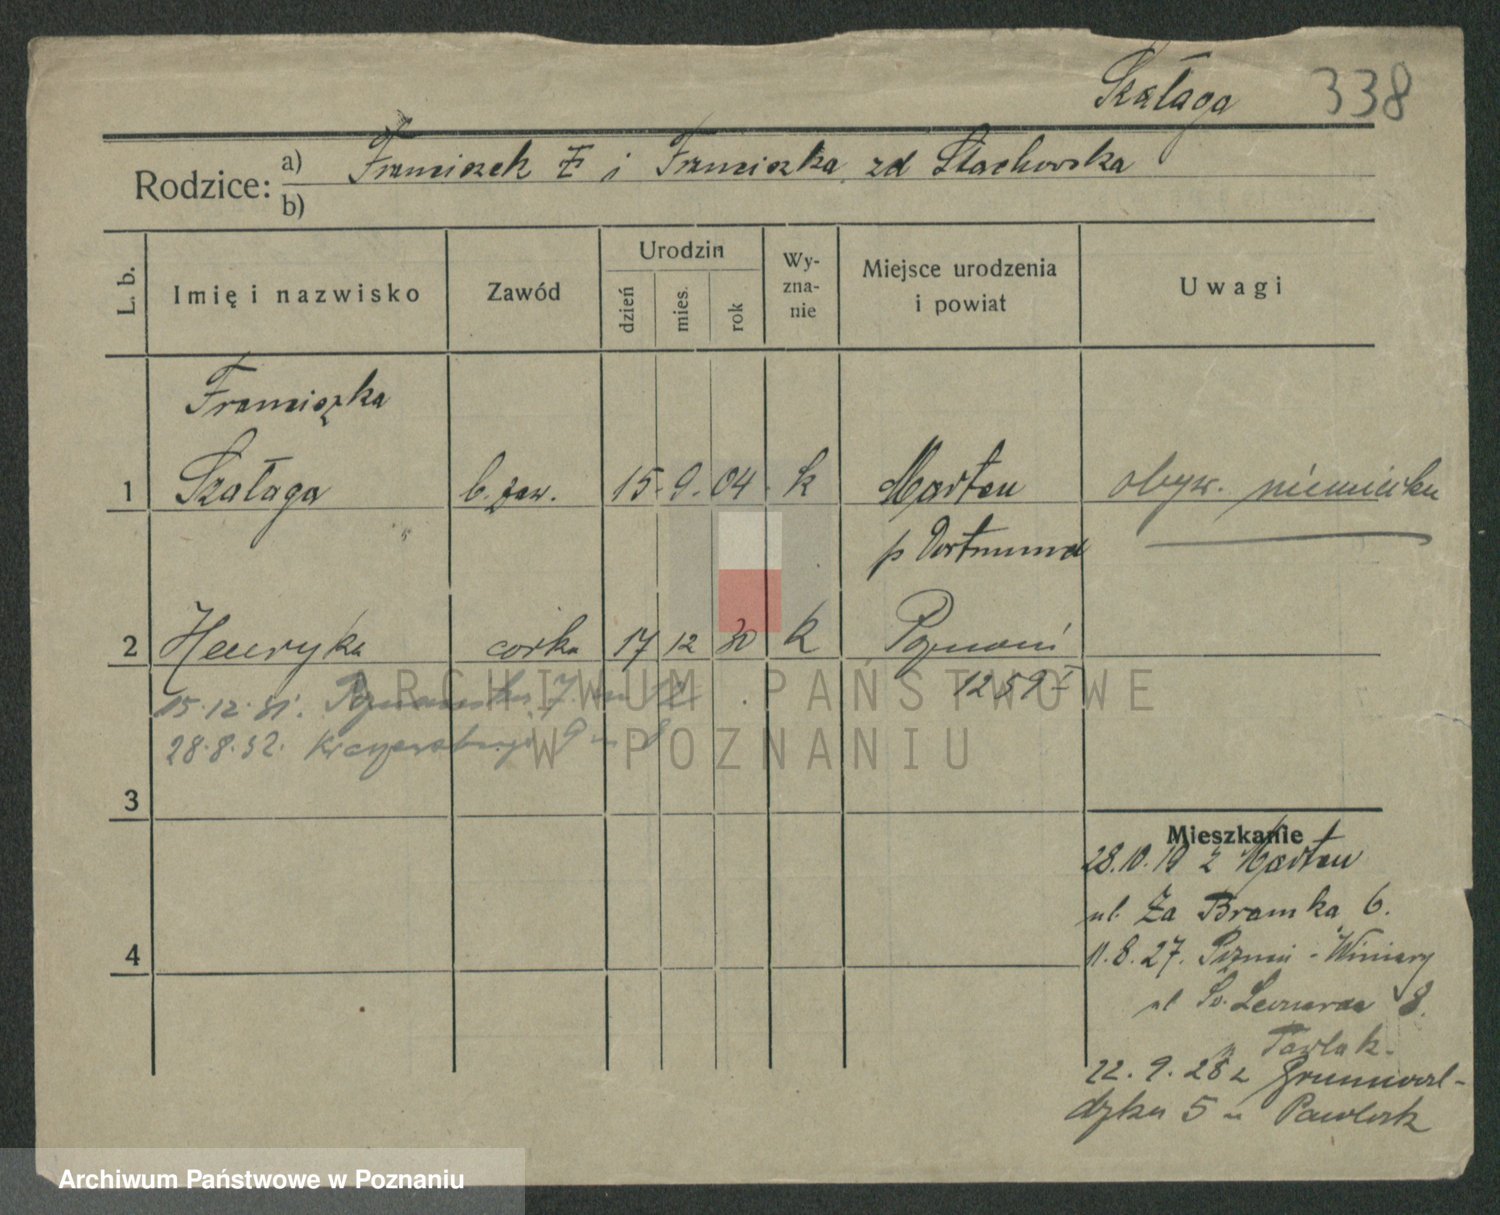 Szałaga 338
Rodzice: a) Franciszek Ł i Franciszka zd Stachowska
b)
L. b. Imię i nazwisko Zawód Urodzin dzień mies. rok Wy-zna-nie Miejsce urodzenia i powiat Uwagi
Franciszka
1 Szałaga b. zaw. 15. 9. 04. k Marten obyw. niemiecka
p Dortmund
2 Henryka córka 17 12 30 k Poznań
1259
15.12.31. 7 m 12
28.8.32. 9 m 8
ARCHIWUM PAŃSTWOWE
W POZNANIU
3
Mieszkanie
28.10.19 z Marten
ul. Za Bramką 6.
4
11.8.27. Poznań - Winiary
ul Św. Leonarda 8.
u Pawlak.
22.9.28 z Grunwal-
dzka 5 u Pawlak
Archiwum Państwowe w Poznaniu